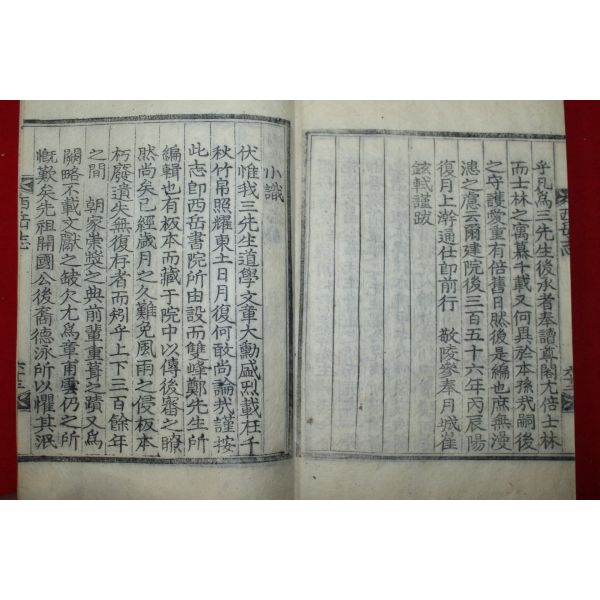 乎凡爲三先生後承者奉讀尊閣尤倍士林
而士林之寓慕千載又何異於本孫哉嗣後
之守護愛重有倍舊日然後是編也庶無漫
漶之慮云爾建院後三百五十六年丙辰陽
復月上澣通仕郎前行 敬陵參奉月城崔
鉉軾謹跋
小識
伏惟我三先生道學文章大勳盛烈載在千
秋竹帛照耀東土日月復何敢尚論哉謹按
此志卽西岳書院所由設而雙峰鄭先生所
編輯也有板本而藏于院中以傳後審之瞭
然尚矣已經歲月之久難免風雨之侵板本
朽廢遺失無復存者而矧乎上下三百餘年
之間 朝家崇獎之典前輩重葺之蹟又爲
闕略不載文獻之缺欠尤爲章甫雲仍之所
慨歎矣先祖開國公後裔德泳所以懼其泯
西岳志
西岳志